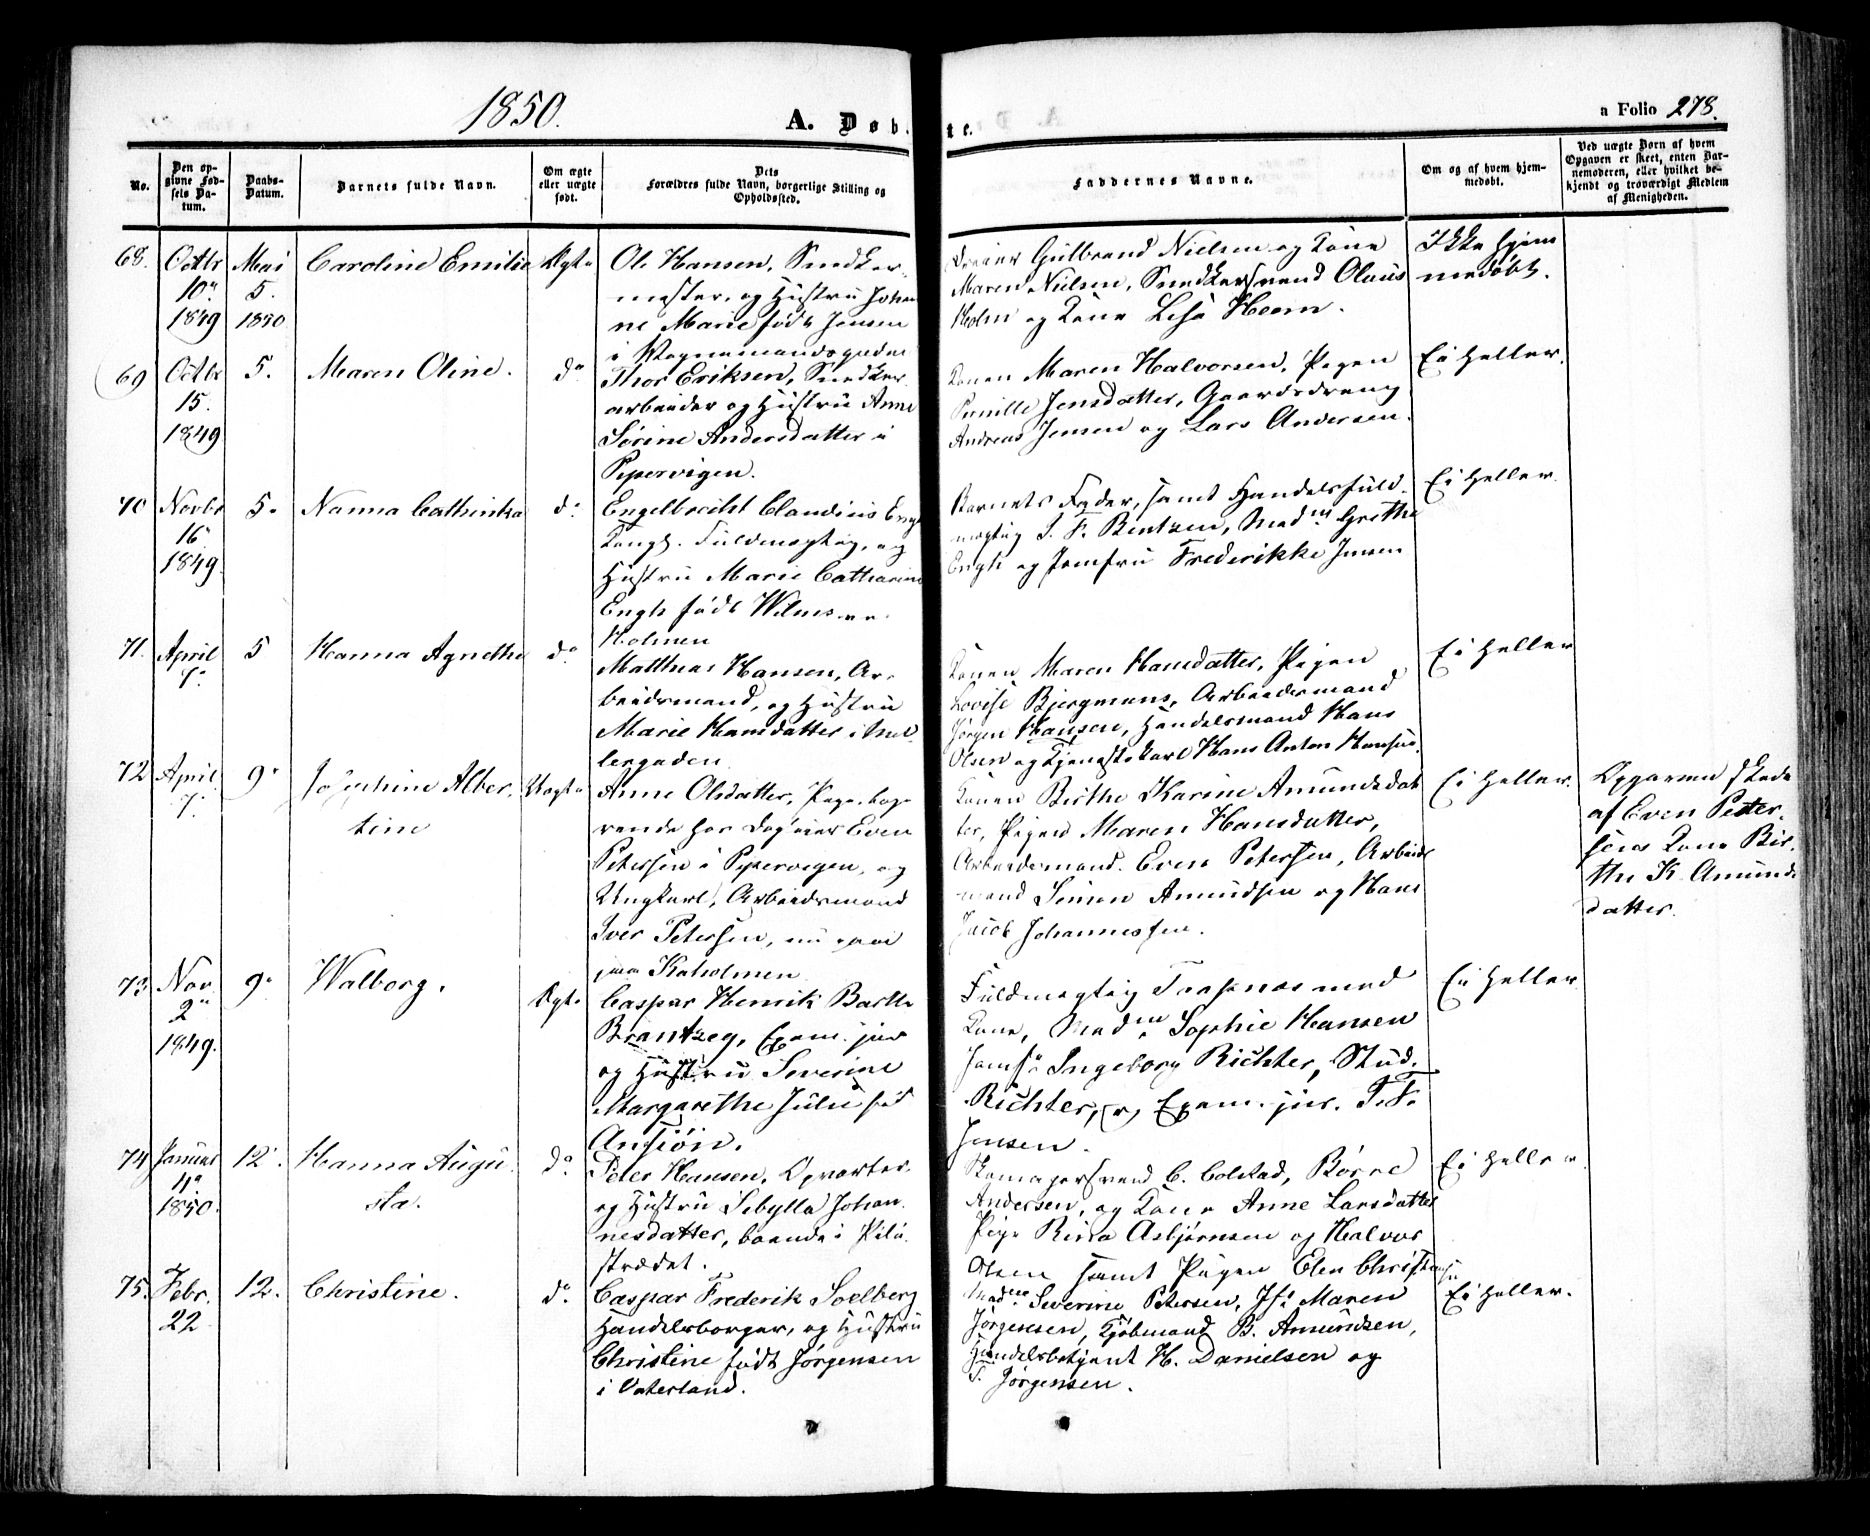 1850.
A. Døb-
te.
a Folio 278.
No.
Den op-
givne Fød-
sels Da-
tum.
Daabs-
Datum.
Barnets fulde Navn.
Om ægte
eller uægte
født.
Dets
Forældres fulde Navn, borgerlige Stilling og
Opholdssted.
Faddernes Navne.
Om og af hvem hjem-
medøbt.
Ved uægte Børn af hvem
Opgaven er skeet, enten Bar-
nemoderen, eller hvilket be-
kjendt og troværdigt Medlem
af Menigheden.
68.
Octbr
10de
1849
Mai
5.
1850
Caroline Emilie
Ægte
Ole Hansen, Snedker-
mester, og Hustru Johan
ne Marie født Jensen
i Vognmandsgaden
Gulbrand Nielsen og Kone
Maren Nielsen, Snedkersvend Olaus
Holm og Kone Lise Holm.
Ikke hjem
medøbt.
69
Octbr
15.
1849
5.
Maren Oline.
do
Thor Eriksen, Snedker
arbeider og Hustru Anne
Sørine Andersdatter i
Pipervigen.
Konen Maren Halvorsen, Pigen
Pernille Jensdatter, Gaardsdreng
Andreas Jensen og Lars Andersen.
Ei heller.
70
Novbr
16
1849.
5.
Nanna Cathinka
do
Engelbrecht Claudius Engh
Kongl. Fuldmægtig, og
Hustru Marie Catharine
Engh født Wilms
Holmen
Barnets Fader, samt Handelsfuld-
mægtig J. F. Bentzen, Madme Grethe
Engh og Jomfru Frederikke Jensen
Ei heller.
71.
April
7.
5
Hanna Agnethe
do
Matthias Hansen, Ar-
beidsmand, og Hustru
Marie Hansdatter i Møl-
lergaden
Konen Maren Hansdatter, Pigen
Lovise Bjergmans, Arbeidsmand
Jørgen Hansen, Handelsmand Hans
Olsen og Tjenestekarl Hans Anton Hansen.
Ei heller
72
April
7.
9.
Josephine Alber-
tine
Uægte
Anne Olsdatter, Pige, boe-
rende hos Dagleier Even
Petersen i Pipervigen, og
Ungkarl, Arbeidsmand
Iver Petersen, nu
paa Kaholmen
Konen Birthe Karine Amundsdat
ter, Pigen Maren Hansdatter,
Arbeidsmand Even Petersen, Arbeids
mand Simen Amundsen og Hans
Jacob Johannessen.
Ei heller.
Opgaven skede
af Even Peter-
sens Kone Bir-
the K. Amunds
datter.
73.
Nov.
2den
1849.
9.
Walborg.
Ægte
Caspar Henrik Barthe
Brantzeg, Exam. jur
og Hustru Severine
Margarethe Julie fød
Ansjøn.
Fuldmægtig med
Kone, Madme Sophie Hansen
Jomfr Ingeborg Richter, Stud.
Richter, og Exam. jur. T. F.
Jensen.
Ei heller
74
Januar
4de
1850.
12.
Hanna Augu-
sta.
do
Peter Hansen, Qvarter-
og Hustru Sibylla Johan-
nesdatter, boende i Pile-
strædet.
Skomagersvend C. Colstad, Børre
Andersen, og Kone Anne Larsdatter
Pige Rina Asbjørnsen og Halvor
Olsen samt Pigen Elen Christiansen
Ei heller
75.
Febr.
22
12.
Christine.
do
Caspar Frederik Soelberg
Handelsborger, og Hustru
Christine født Jørgensen
i Vaterland.
Madme Severine Petersen, Jfr Maren
Jørgensen, Kjøbmand B. Amundsen,
Handelsbetjent H. Danielsen og
T. Jørgensen.
Ei heller.